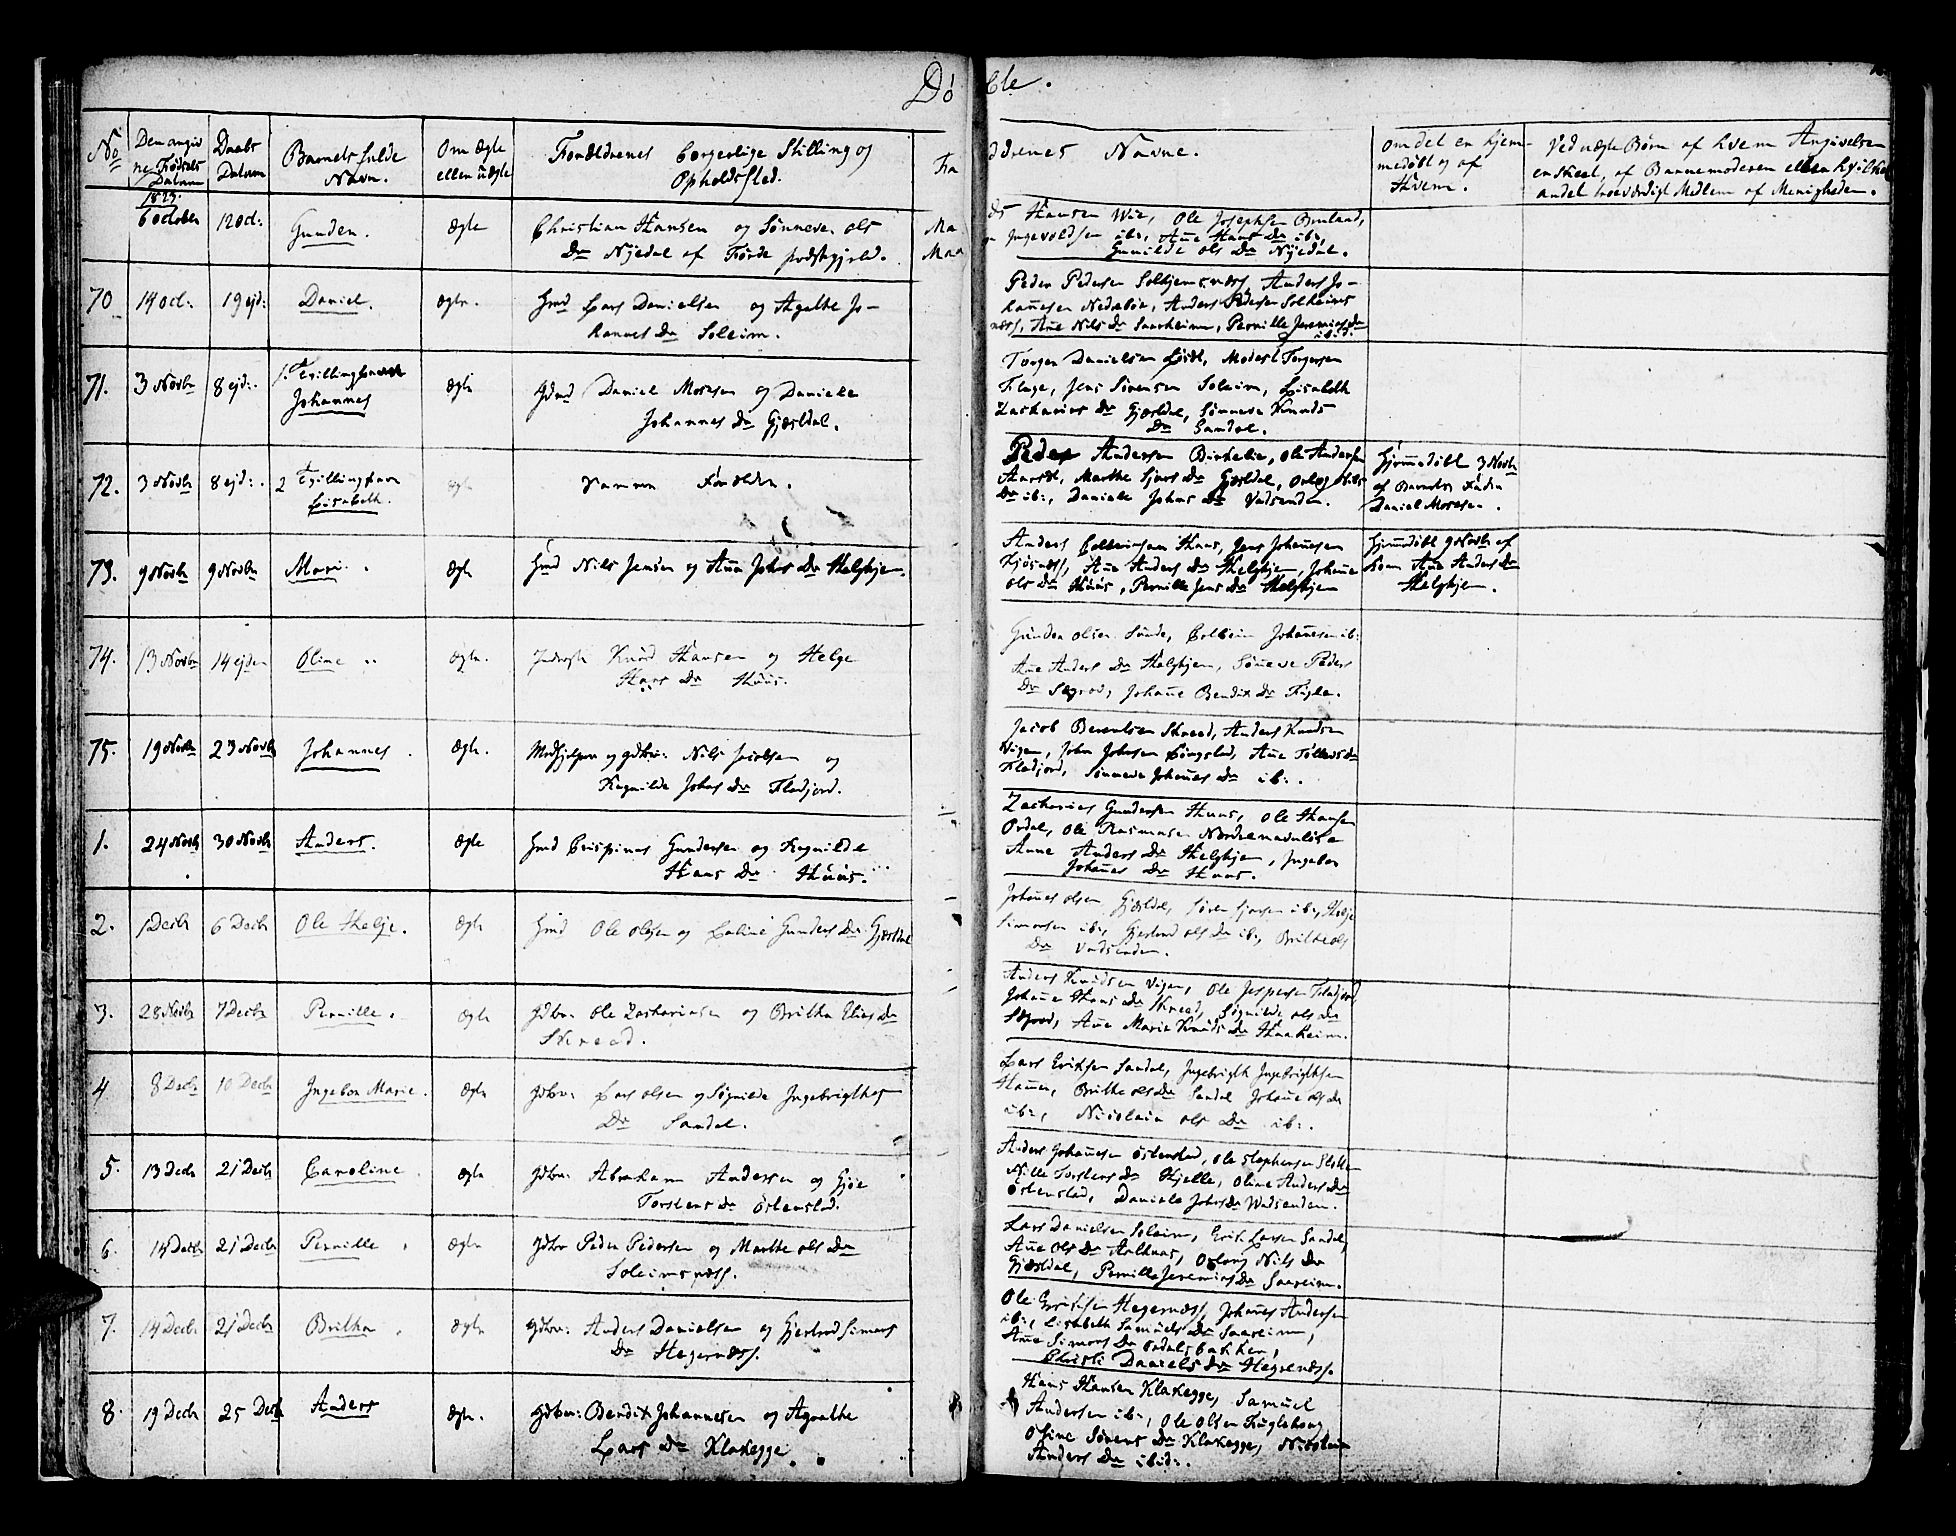 Døbte.
No
Den angivne Fødsels Datum
Daabs Datum
Barnets fulde Navn.
Om Ægte eller uægte
Forældrenes borgerlige Stilling og Opholdssted.
Faddrenes Navne.
Om det er hjemmedøbt og af Hvem.
Ved uægte Børn af hvem Angivelsen er skeet, af Barnemoderen eller hvilket andet troeværdigt Medlem af Menigheden.
1823.
6 October 12 Oct: Gunder. Ægte Christian Hansen og Sønneve Ols
Dr Nÿedal af Førde præstegjeld.
Hansen Wie, Ole Josephsen Bruland,
Ingevoldsen ib:, Anne Hans Dr ib:,
Gunilde Ols Dr Nÿedal.
70. 14 Oct: 19 ejd: Daniel. Ægte. Hmd Lars Danielsen og Agathe Jo-
hannes Dr Soleim.
Peder Pedersen Solhjemsnæss, Anders Jo-
hannesen Nedrebøe, Anders Pedersen Solheims
næss, Ane Nils Dr Saarheim, Pernille Jeremias Dr
ibid.
71. 3 Novbr 8 ejd: 1. Tvillingbarn Johannes Ægte Gdmd Daniel Mosesen og Daniele
Johannes Dr Gjæsdal.
Torger Danielsen Modest Torgersen
Fluge, Jens Sørensen Soleim, Lisabeth
Zacharias Dr Gjæsdal, Sønneva Knuds
Dr Sandal.
72. 3 Novbr 8 ejd: 2 Tvillingbarn Lisabeth. Ægte Samme Forældre.
Peder Andersen Birkelie, Ole Andersen
Aarseth, Marthe Dr Gjæsdal, Oslög Nils
Dr ib:, Daniele Johns Dr Vadsenden.
Hjemmedøbt 3 Novbr
af Barnets Fader
Daniel Mosesen.
73. 9 Novbr 9 Novbr Mari. Ægte Hmd Nils Jensen og Ane Johs Dr Helgheim.
Anders Colbeinsen Huus, Jens Johannesen
Kjøsnæss, Ane Anders Dr Helghjem, Johane
Ols Dr Huus, Pernille Jens Dr Helghjem
Hjemmedøbt 9 Novbr af
Konen Ane Anders Dr
Helghjem.
74. 13 Novbr 14 ejd: Oline Ægte. Inderste Knud Hansen og Helge
Hans Dr Huus.
Gunder Olsen Sunde, Colbein Johannesen ib:
Ane Anders Dr Helghjem, Sønneve Peders
Dr Søgrov, Johane Bendix Dr Fugle.
75. 19 Novbr 23 Novbr Johannes. Ægte. Medhjelper og Gdbr: Nils Jacobsen og
Ragnilde Johns Dr Fladjord.
Jacob Berentsen Skreed, Anders Knudsen
Vigen, John Johnsen Lingstad, Ane Tollevs Dr
Fladjord, Sønneve Johannes Dr ib:.
1. 24 Novbr 30 Novbr Anders. Ægte Hmd Crispinus Gundersen og Ragnilde
Hans Dr Huus.
Zacharias Gundersen Huus, Ole Hansen
Ordal, Ole Rasmusen
Anne Anders Dr Helghjem, Ingebor
Johannes Dr Huus.
2. 1 Decbr 6 Decbr Ole Helje. Ægte Hmd Ole Olsen og Laline Gunders Dr Gjæsdal
Johannes Olsen Gjæsdal, Søren Sjursen ib:, Helje
Simonsen ib:, Gjertrud Ols Dr ib:, Brithe Ols
Dr Vadsenden.
3. 28 Novbr 7 Decbr Pernille. Ægte Gdbr: Ole Zachariasen og Britha Elias Dr
Skreed.
Anders Knudsen Vigen, Ole Jespersen Fladjord
Johane Hans Dr Skreed, Søgnilde Ols Dr
Søgrov, Ane Marie Knuds Dr Haaheim.
4 8 Decbr 10 Decbr Ingebor Marie. Ægte Gdbr: Lars Olsen og Søgnilde Ingebrigthes
Dr Sandal.
Lars Eriksen Sandal, Ingebrigth Ingebrigthsen
Hamer, Brithe Ols Dr Sandal Johane Ols Dr
ib:, Nicolaia Ols Dr ib:.
5. 13 Decbr 21 Decbr Caroline. Ægte Gdbr: Abraham Andersen og Gjøe
Torstens Dr Østenstad.
Anders Johannesen Østenstad, Ole Stephensen
Nille Torstens Dr Hjelle, Oline Anders Dr
Østenstad, Daniele Johns Dr Wadsenden.
6. 14 Decbr 21 Decbr Pernille. Ægte Gdbr Peder Pedersen og Marthe Ols Dr
Soleimsnæss.
Lars Danielsen Soleim, Erik Larsen Sandal,
Ane Ols Dr Aalhuus, Oslaug Nils Dr
Gjæsdal, Pernille Jeremias Dr Saareim.
7. 14 Decbr 21 Decbr Britha. Ægte Gdbr: Anders Danielsen og Gjertrud Simons
Dr Hegernæss.
Ole Hegernæss, Johannes Andersen
ib:, Lisabeth Samuels Dr Saareim,
Ane Simons Dr Ordalsbakken,
Christi Daniels Dr Hegrenæss.
8. 19 Decbr 25 Decbr Anders Ægte. Gdbr: Bendix Johannesen og Agathe
Lars Dr Klakegge.
Hans Hansen Klakegge, Samuel
Andersen ib:, Ole Olsen Fuglehoug
Oline Sørens Dr Klakegge, Nicolaia
Anders Dr ibid:.